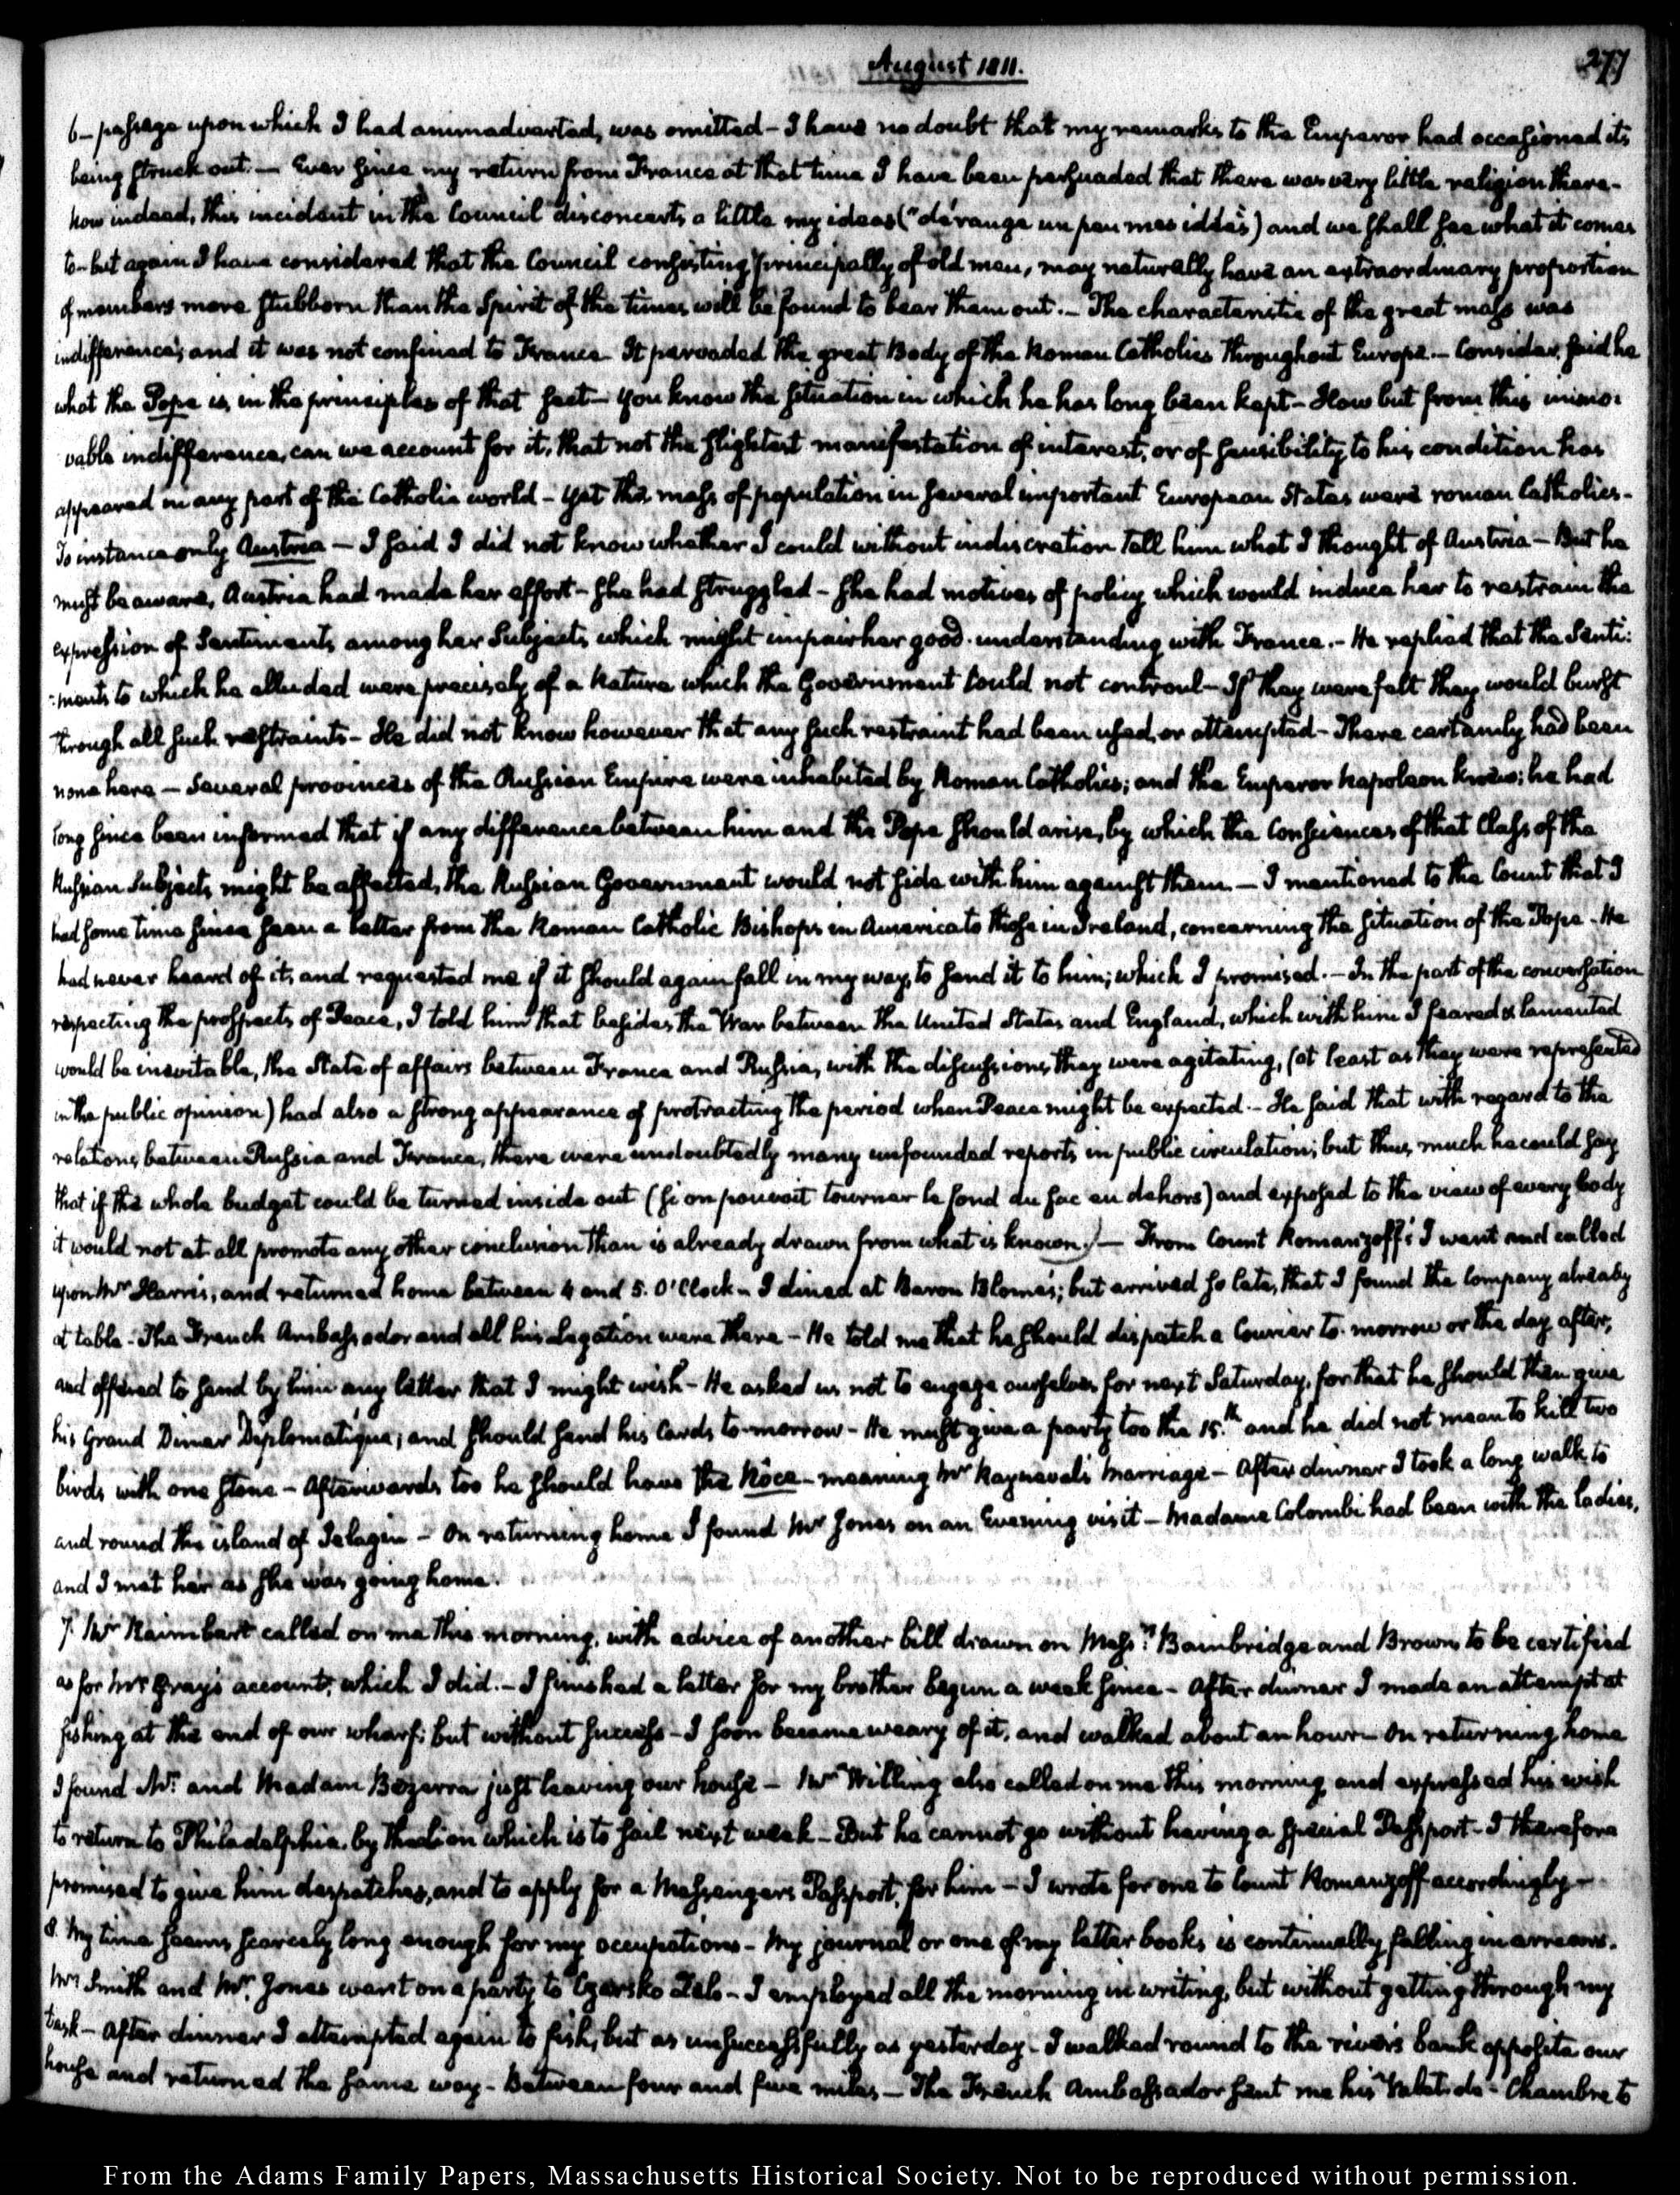 August 1811.
277
6- passage upon which I had animadverted, was omitted - I have no doubt that my remarks to the Emperor had occasioned its
being struck out. — Ever since my return from France at that time I have been persuaded that there was very little religion there -
now indeed, this incident in the Council disconcerts a little my ideas ("dérange un peu mes idées) and we shall see what it comes
to - but again I have considered that the Council consisting principally of old men, may naturally have an extraordinary proportion
of members more stubborn than the Spirit of the times will be found to bear them out. - The characteristic of the great mass was
indifference; and it was not confined to France - It pervaded the great Body of the Roman Catholics throughout Europe. - Consider, said he
what the Pope is, in the principles of that sect - You know the situation in which he has long been kept - How but from this immo:
vable indifference, can we account for it, that not the slightest manifestation of interest, or of sensibility to his condition has
appeared in any part of the Catholic world - Yet the mass of population in several important European States were roman Catholics -
To instance only Austria — I said I did not know whether I could without indiscretion tell him what I thought of Austria - But he
must be aware, Austria had made her effort - She had struggled - She had motives of policy which would induce her to restrain the
expression of Sentiments among her Subjects which might impair her good-understanding with France. - He replied that the Senti:
:ments to which he alluded were precisely of a Nature which the Government could not controul - If they were felt they would burst
through all such restraints - He did not know however that any such restraint had been used, or attempted - There certainly had been
none here — Several provinces of the Russian Empire were inhabited by Roman Catholics; and the Emperor Napoleon knew; he had
long since been informed that if any difference between him and the Pope should arise, by which the Consciences of that Class of the
Russian Subjects might be affected, the Russian Government would not side with him against them. — I mentioned to the Count that I
had some time since seen a letter from the Roman Catholic Bishops in America to those in Ireland, concerning the situation of the Pope - He
had never heard of it, and requested me if it should again fall in my way, to send it to him; which I promised. - In the part of the conversation
respecting the prospects of Peace, I told him that besides the War between the United States and England, which with him I feared & lamented
would be inevitable, the State of affairs between France and Russia, with the discussions they were agitating, (at least as they were represented
in the public opinion) had also a strong appearance of protracting the period when Peace might be expected. - He said that with regard to the
relations between Russia and France, there were undoubtedly many unfounded reports in public circulation; but thus much he could say
that if the whole budget could be turned inside out (si on pouvoit tourner le fond du sac en dehors) and exposed to the view of every body
it would not at all promote any other conclusion than is already drawn from what is known.) — From Count Romanzoff's I went and called
upon Mr Harris, and returned home between 4 and 5. O'Clock - I dined at Baron Blome's; but arrived so late, that I found the Company already
at table - The French Ambassador and all his legation were there - He told me that he should dispatch a Courier to-morrow or the day after,
and offered to send by him any letter that I might wish - He asked us not to engage ourselves for next Saturday, for that he should then give
his Grand Diner Diplomatique; and should send his Cards to-morrow - He must give a party too the 15.th and he did not mean to kill two
birds with one stone - Afterwards too he should have the Nôce - meaning Mr Rayneval's Marriage - After dinner I took a long walk to
and round the island of Jelagin - On returning home I found Mr Jones on an Evening visit - Madame Colombi had been with the ladies,
and I met her as she was going home.
7. Mr Raimbert called on me this morning, with advice of another bill drawn on Mess.rs Bainbridge and Brown, to be certified
as for Mr Gray's account, which I did. - I finished a letter for my brother begun a week since - After dinner I made an attempt at
fishing at the end of our wharf; but without success - I soon became weary of it, and walked about an hour - On returning home
I found Mr. and Madam Bezerra just leaving our house - Mr Willing also called on me this morning, and expressed his wish
to return to Philadelphia, by the Lion which is to sail next week - But he cannot go without having a special Passport - I therefore
promised to give him despatches, and to apply for a Messengers Passport, for him - I wrote for one to Count Romanzoff accordingly -
8. My time seems scarcely long enough for my occupations - My journal or one of my letter books is continually falling in arrears.
Mr Smith and Mr. Jones went on a party to Czarsko Zelo - I employed all the morning in writing, but without getting through my
task - After dinner I attempted again to fish, but as unsuccessfully as yesterday - I walked round to the river's bank opposite our
house and returned the same way - Between four and five miles — The French Ambassador sent me his Valet-de-Chambre to
From the Adams Family Papers, Massachusetts Historical Society. Not to be reproduced without permission.